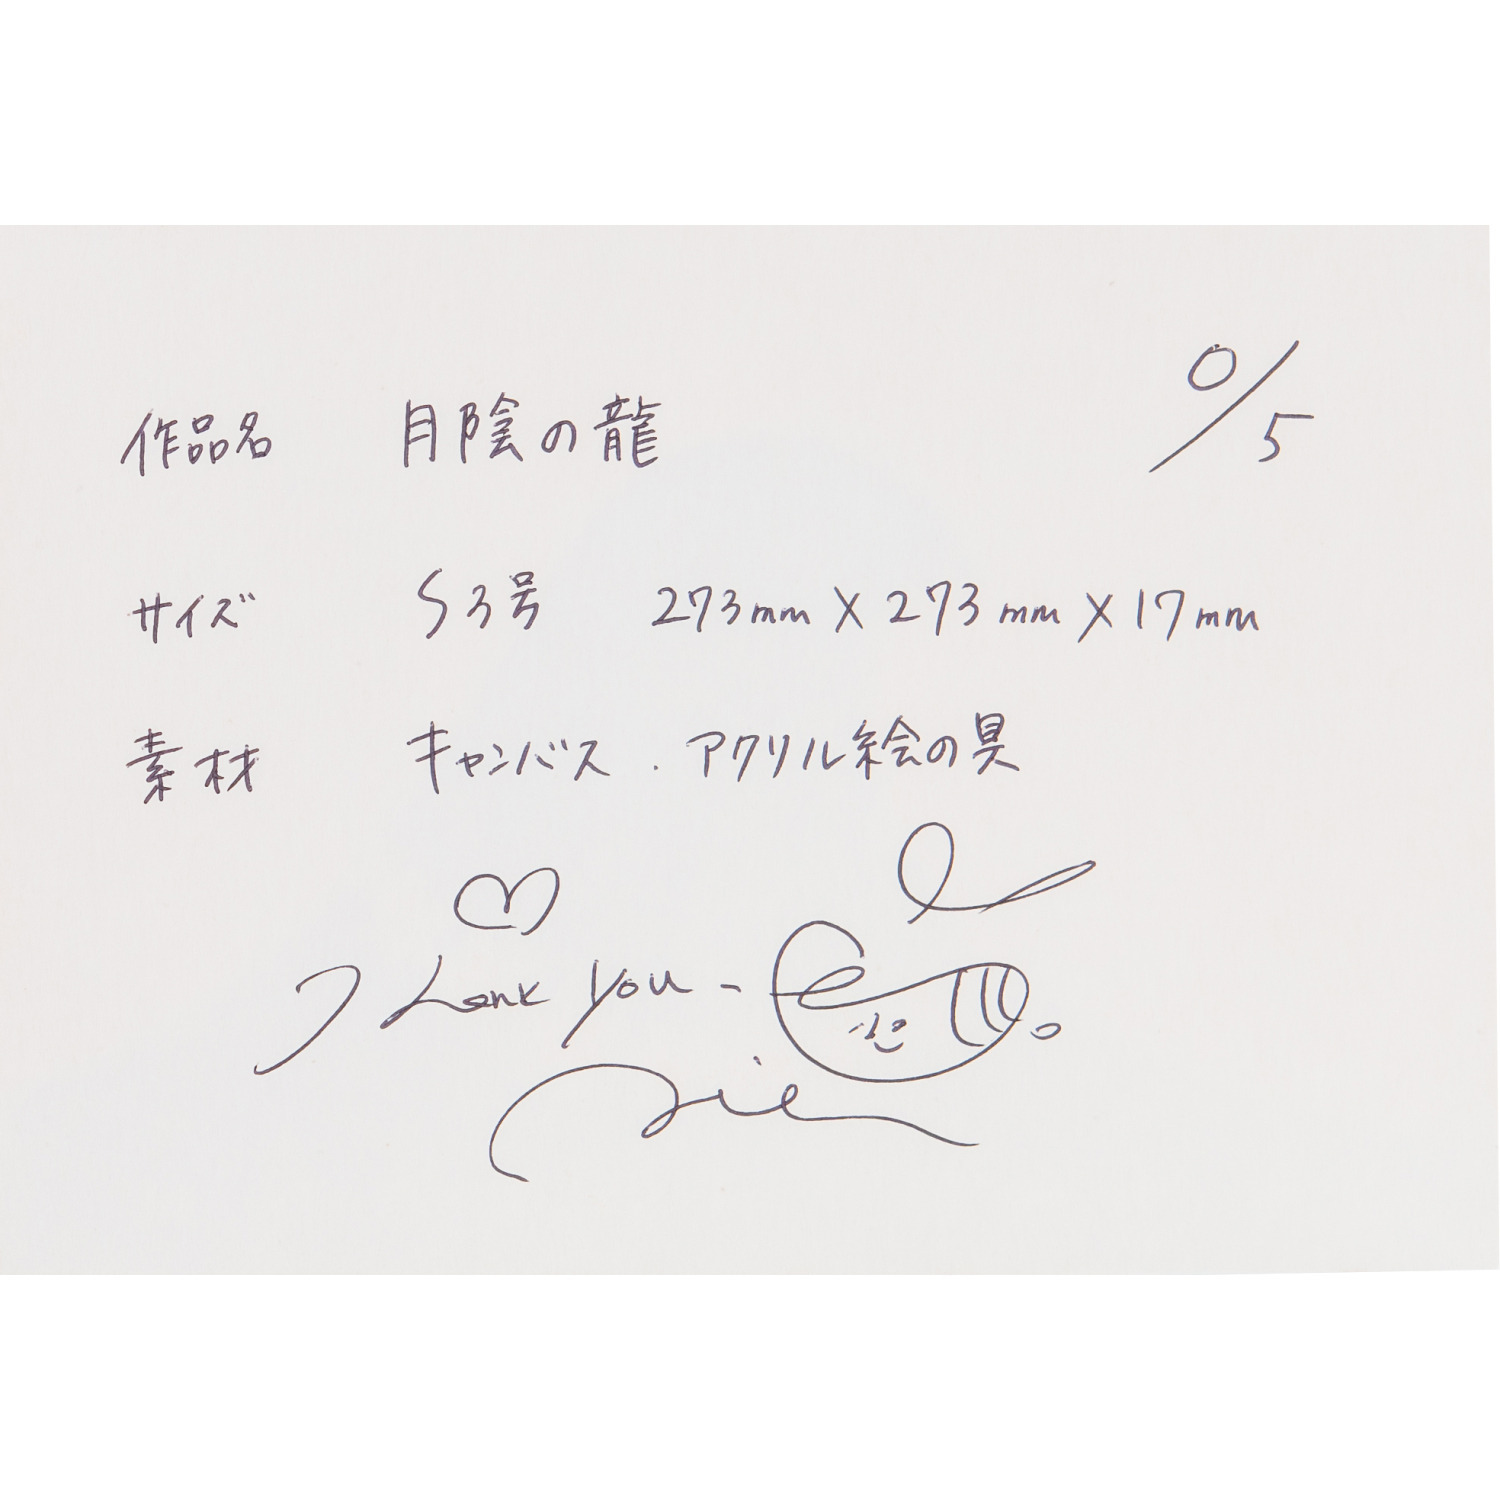 0/5
作品名 月陰の龍
サイズ S3号 273mm X 273mm X 17mm
素材 キャンバス . アクリル絵の具
Thank you -